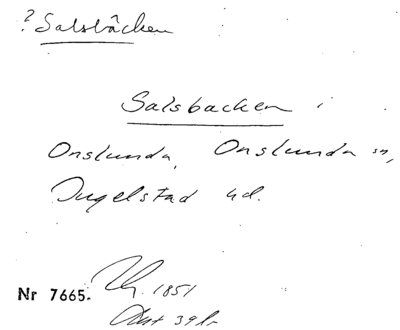 ? Salsbäcken
Salsbacken i
Onslunda, Onslunda sn,
Ingelstad hd.
Nr 7665. 1851